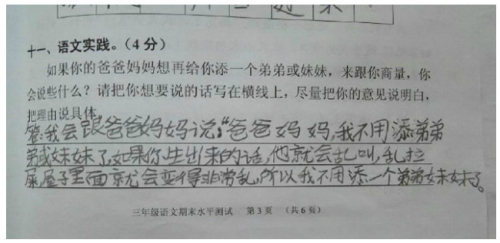 十一、语文实践。(4分)
如果你的爸爸妈妈想再给你添一个弟弟或妹妹，来跟你商量，你
会说些什么？请把你想要说的话写在横线上，尽量把你的意见说明白，
把理由说具体。
答:我会跟爸爸妈妈说:“爸爸妈妈,我不用添弟弟
弟或妹妹了,如果你生出来的话,他就会乱叫,乱拉
屎,屋子里面就会变得非常乱,所以我不用添一个弟弟妹妹了。
三年级语文期末水平测试 第3页 (共6页)